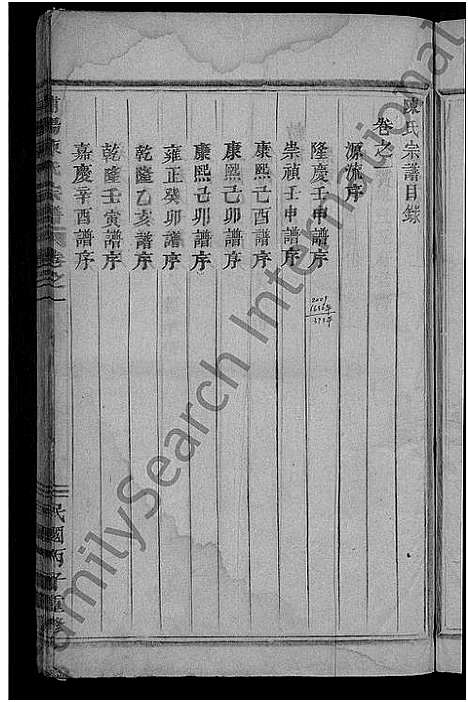 陳氏宗譜目錄
卷之一
源流序
隆慶壬申譜序
崇禎壬申譜序
康熙己酉譜序
康熙己卯譜序
雍正癸卯譜序
乾隆乙亥譜序
乾隆壬寅譜序
嘉慶辛酉譜序
陳氏宗譜
卷之一
民國丙子重修
FamilySearch International